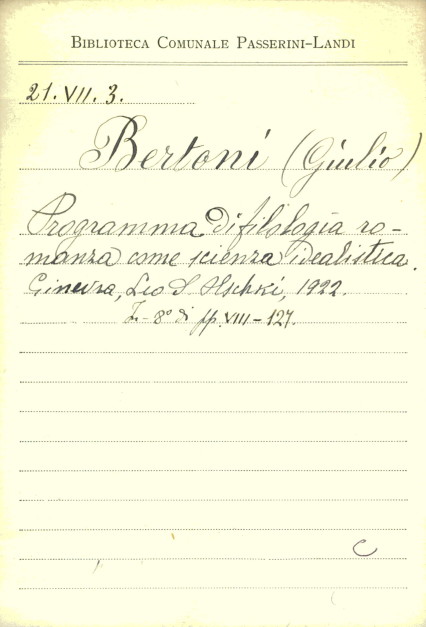 BIBLIOTECA COMUNALE PASSERINI-LANDI
21. VII. 3.
Bertoni (Giulio)
Programma di filologia ro-
manza come scienza idealistica.
Ginevra, Leo S. Olschki, 1922.
In-8° di pp. VIII-127.
C